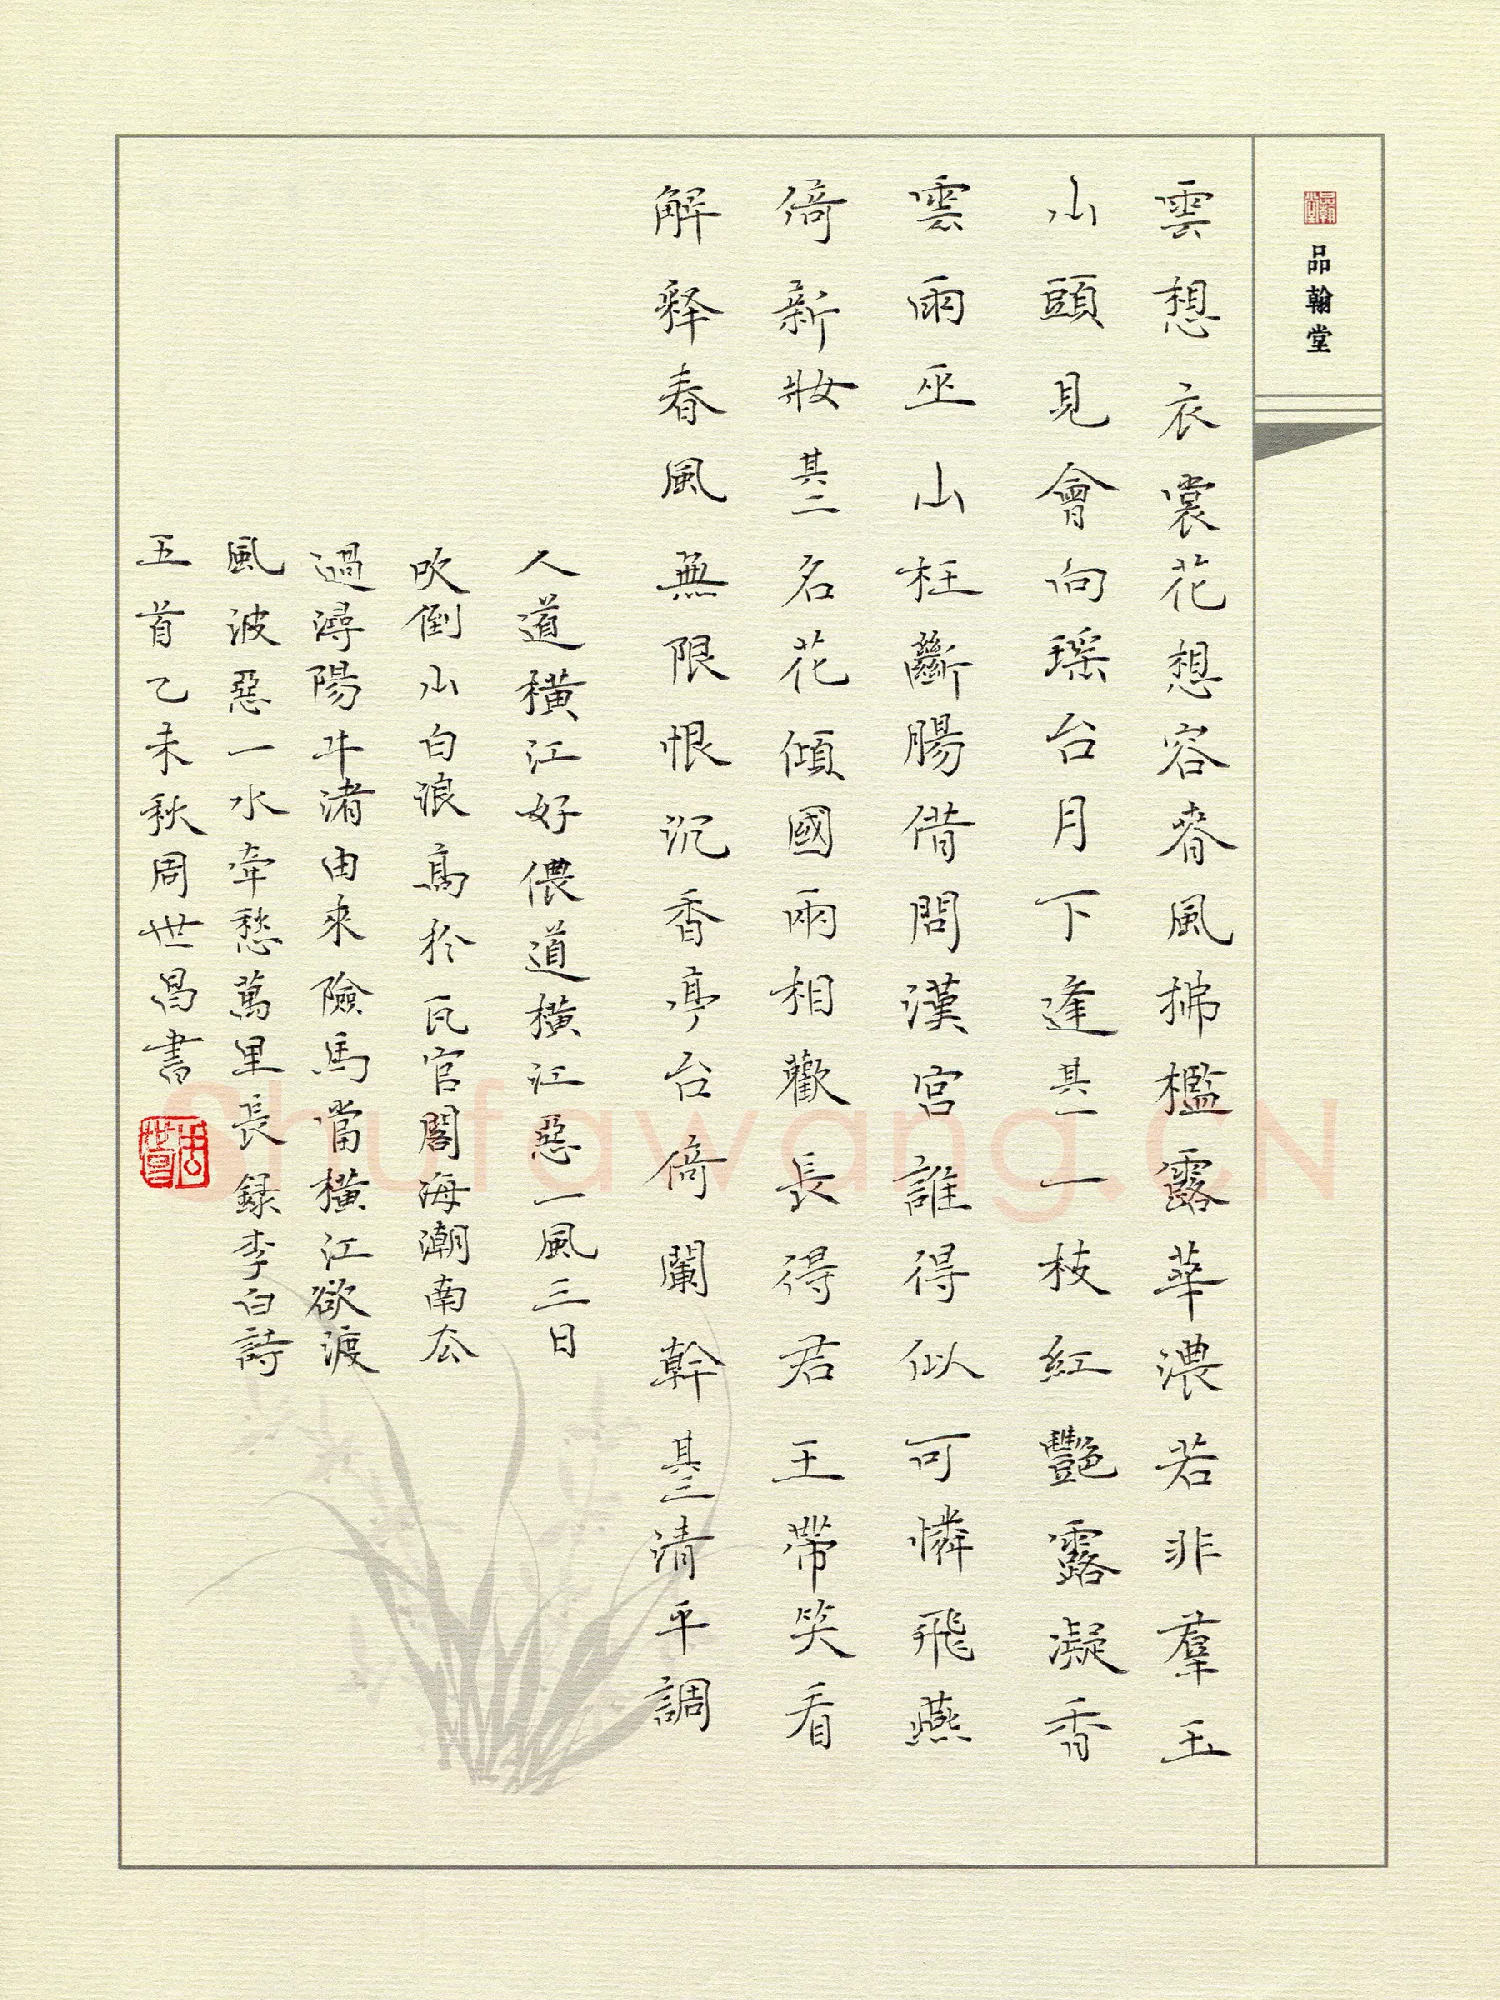 品翰堂
雲想衣裳花想容春風拂檻露華濃若非羣玉
山頭見會向瑶台月下逢其一一枝紅艷露凝香
雲雨巫山枉斷腸借問漢宮誰得似可憐飛燕
倚新妝其二名花傾國兩相歡長得君王帶笑看
解释春風無限恨沉香亭台倚闌幹其三清平調
人道橫江好儂道橫江惡一風三日
吹倒山白浪高於瓦官閣海潮南去
過潯陽牛渚由來險馬當橫江欲渡
風波惡一水牽愁萬里長録李白詩
五首乙未秋周世昌書
Shufawang.CN